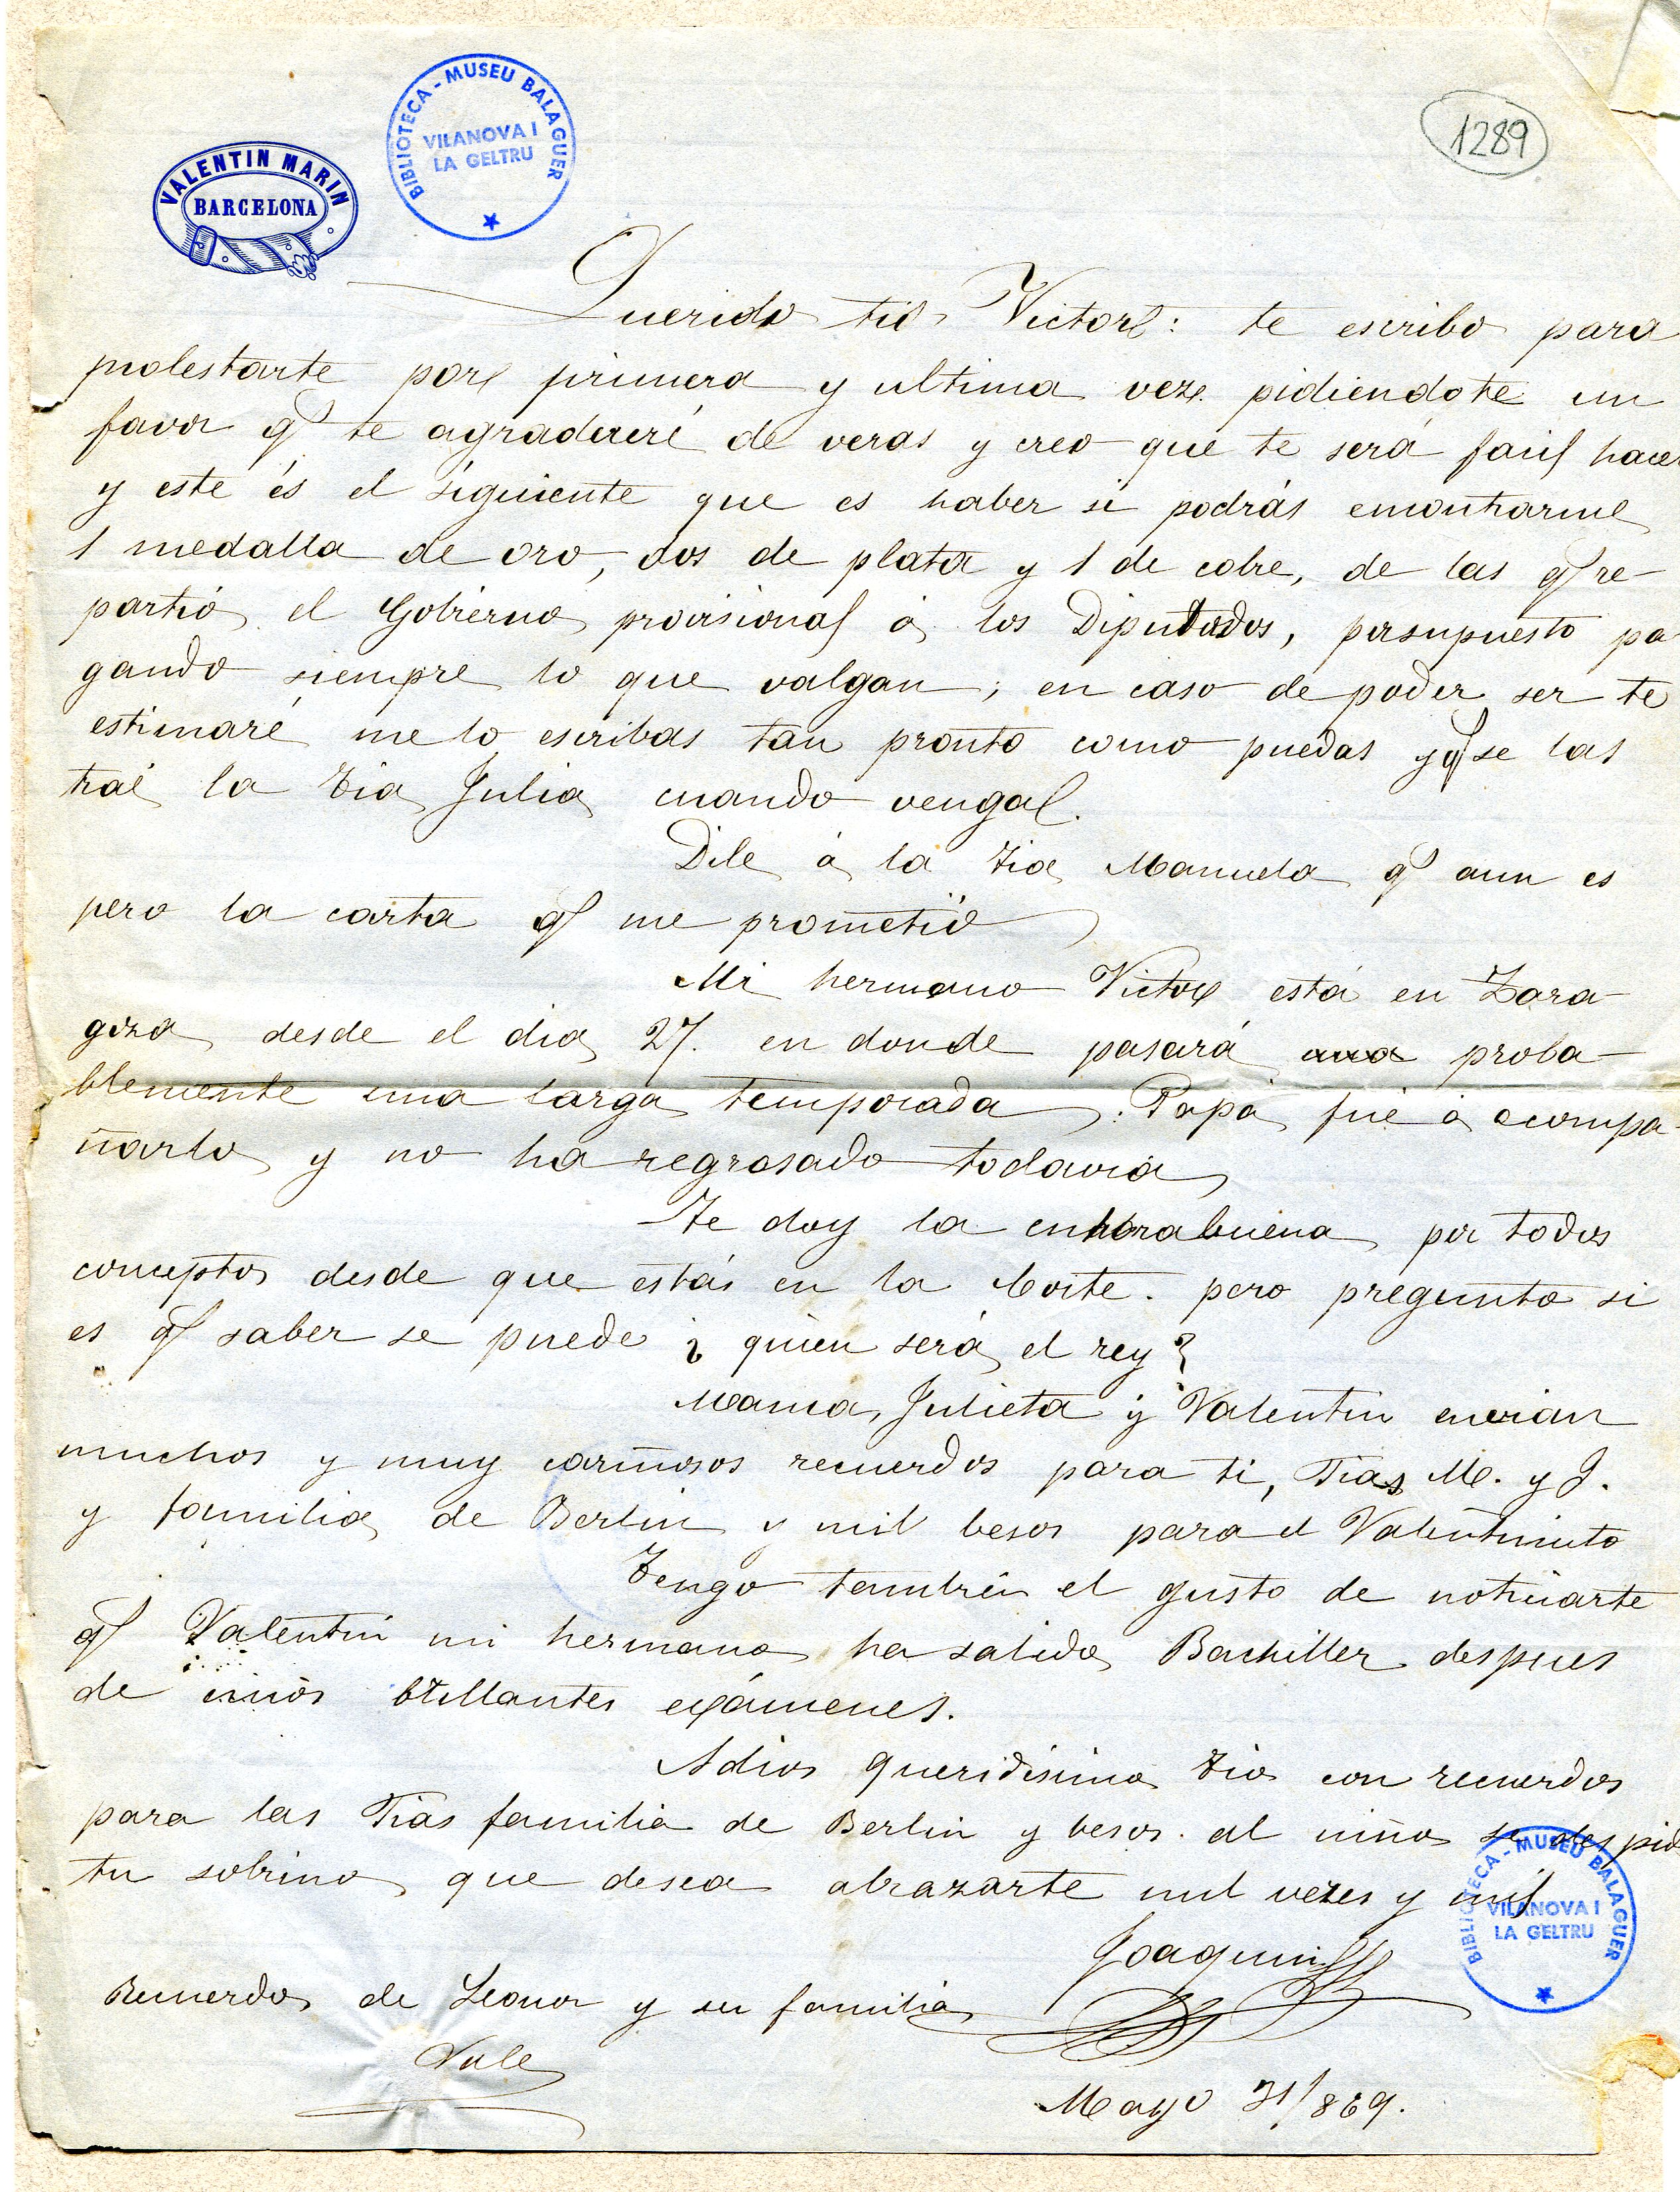 BIBLIOTECA - MUSEU BALAGUER
VILANOVA I
LA GELTRU
1289
VALENTIN MARIN
BARCELONA
Querido tio Victor: te escribo para
molestarte por primera y ultima vez pidiendote un
favor q. te agradeceré de veras y creo que te será facil hacer
y este és el siguiente que es haber si podrás encontrarme
1 medalla de oro, dos de plata y 1 de cobre, de las q. re-
partió el Gobierno provisional á los Diputados, porsupuesto pa-
gando siempre lo que valgan; en caso de poder ser te
estimaré me lo escribas tan pronto como puedas y q. se las
trae la tia Julia cuando venga.
Dile á la tia Manuela q. aun es
pero la carta q. me prometió
Mi hermano Victor está en Zara-
goza desde el dia 27. en donde pasará proba-
blemente una larga temporada. Papá fué á acompa-
ñarlo y no ha regresado todavia
Te doy la enhorabuena por todos
conceptos desde que estás en la Corte. pero pregunto si
es q. saber se puede ¿quien será el rey?
Mama, Julieta y Valentin envian
muchos y muy cariñosos recuerdos para ti, Tias M. y J.
y familia de Berlin y mil besos para el Valentinito
Tengo tambien el gusto de noticiarte
q. Valentin mi hermano ha salido Bachiller despues
de brillantes exámenes.
Adios queridisimo tio con recuerdos
para las Tias familia de Berlin y besos al niño se despide
tu sobrino que desea abrazarte mil vezes y mil
Joaquin
Recuerdos de Leonor y su familia
Vale
Mayo 31/869.
BIBLIOTECA - MUSEU BALAGUER
VILANOVA I
LA GELTRU